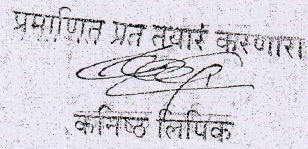 प्रमाणित प्रत तयार करणारा
कनिष्ठ लिपिक